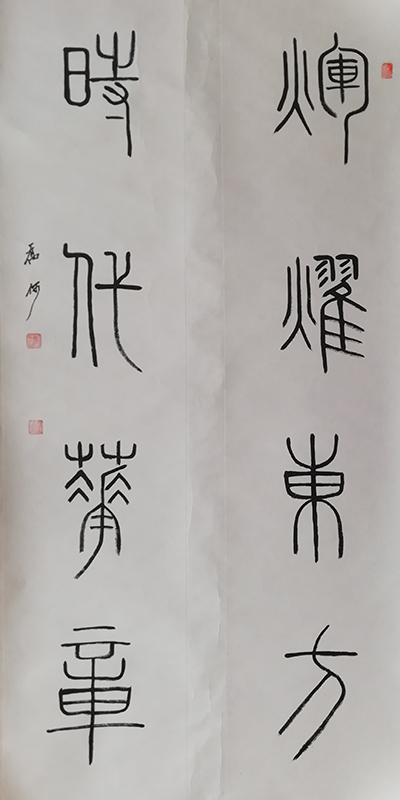 煇燿東方
時代華章